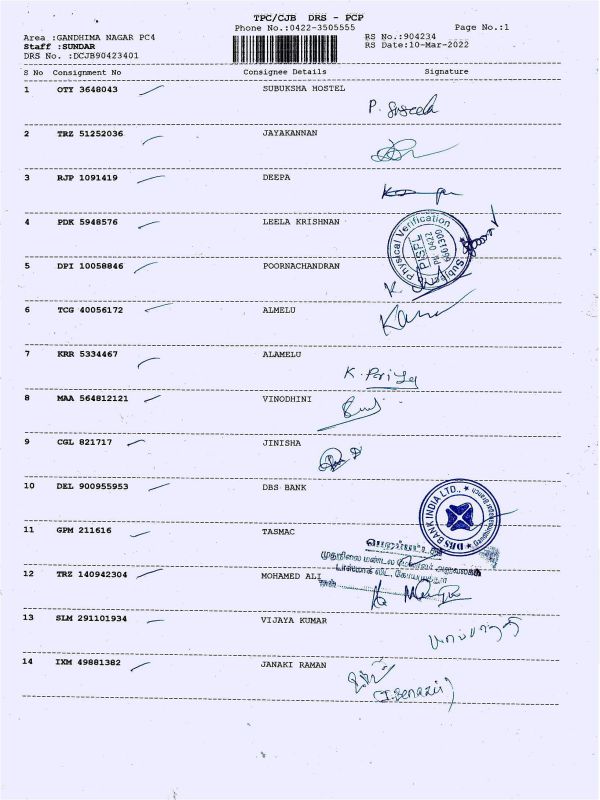 TPC/CJB DRS - PCP
Phone No.:0422-3505555 Page No.:1
Area :GANDHIMA NAGAR PC4 RS No.:904234
Staff :SUNDAR RS Date:10-Mar-2022
DRS No. :DCJB90423401
S No Consignment No Consignee Details Signature
1 OTY 3648043 SUBUKSHA HOSTEL
P.
2 TRZ 51252036 JAYAKANNAN
3 RJP 1091419 DEEPA
4 PDK 5948576 LEELA KRISHNAN
Physical Verification
5 DPI 10058846 POORNACHANDRAN
K
6 TCG 40056172 ALMELU
7 KRR 5334467 ALAMELU
K.
8 MAA 564812121 VINODHINI
9 CGL 821717 JINISHA
10 DEL 900955953 DBS BANK
DBS BANK INDIA LTD.,
11 GPM 211616 TASMAC
12 TRZ 140942304 MOHAMED ALI
13 SLM 291101934 VIJAYA KUMAR
14 IXM 49881382 JANAKI RAMAN
(I. Benazir)